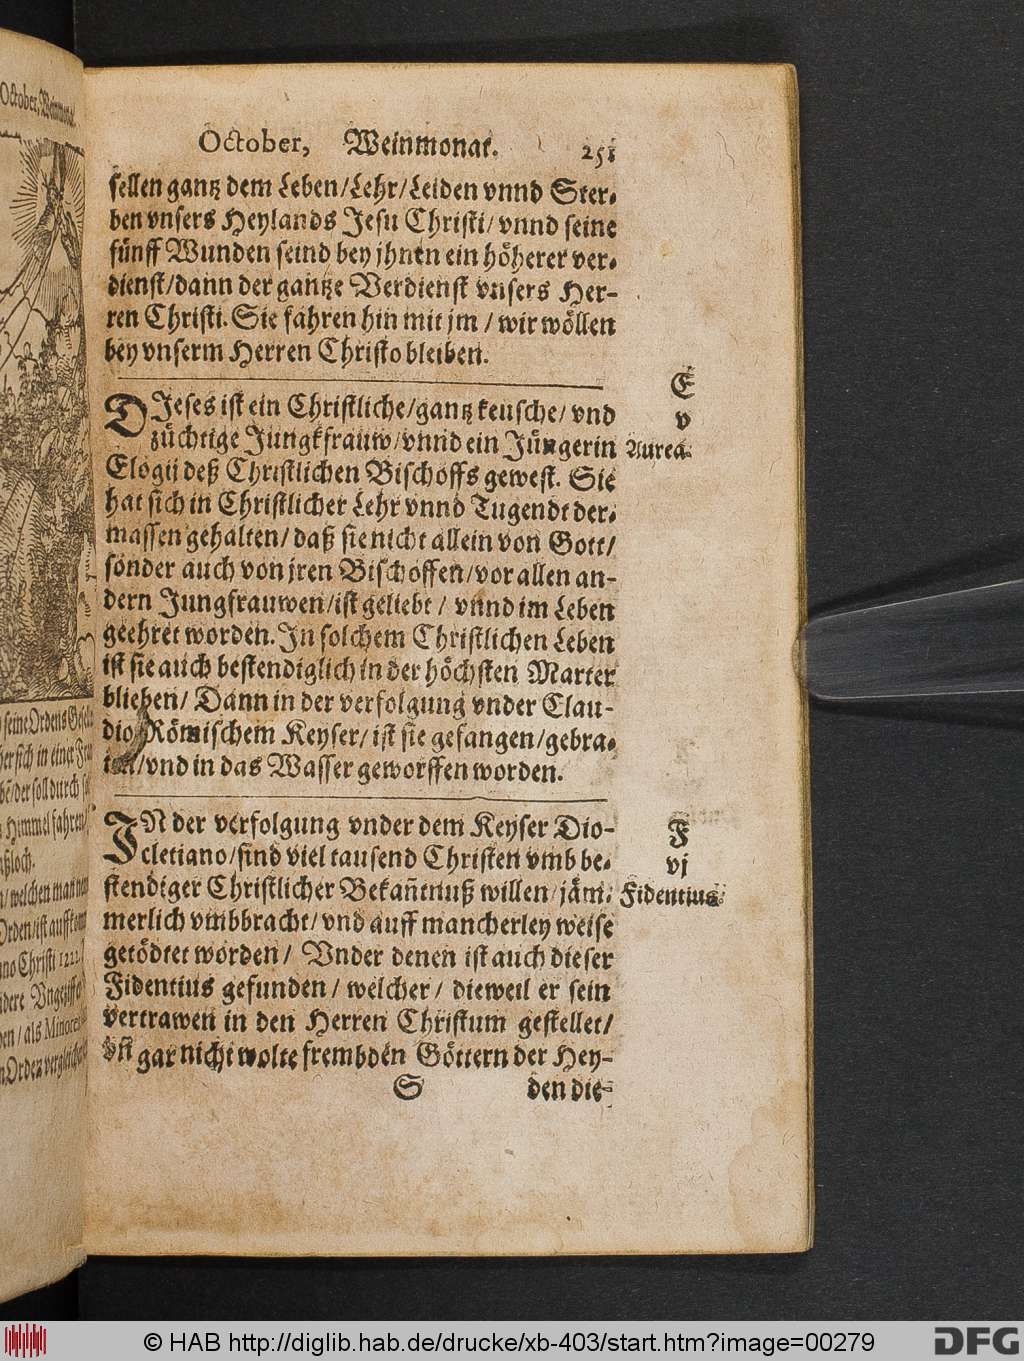 October, Weinmonat. 251
sellen gantz dem Leben/Lehr/Leiden vnnd Ster-
ben vnsers Heylands Jesu Christi/ vnnd seine
fünff Wunden seind bey jhnen ein höherer ver-
dienst/dann der gantze Verdienst vnsers Her-
ren Christi. Sie fahren hin mit jm / wir wöllen
bey vnserm Herren Christo bleiben.
E
v
Aurea.
DJeses ist ein Christliche/gantz keusche/ vnd
züchtige Jungkfrauw/vnnd ein Jüngerin
Elogij deß Christlichen Bischoffs gewest. Sie
hat sich in Christlicher Lehr vnnd Tugendt der-
massen gehalten/ daß sie nicht allein von Gott/
sonder auch von jren Bischoffen/vor allen an-
dern Jungfrauwen/ist geliebt / vnnd im Leben
geehret worden. In solchem Christlichen Leben
ist sie auch bestendiglich in der höchsten Marter
blieben/ Dann in der verfolgung vnder Clau-
dio Römischem Keyser/ ist sie gefangen/gebra-
ten/vnd in das Wasser geworffen worden.
F
vj
Fidentius.
IN der verfolgung vnder dem Keyser Dio-
cletiano/sind viel tausend Christen vmb be-
stendiger Christlicher Bekañtnuß willen/jäm-
merlich vmbbracht/ vnd auff mancherley weise
getödtet worden/ Vnder denen ist auch dieser
Fidentius gefunden / welcher / dieweil er sein
vertrawen in den Herren Christum gestellet/
vñ gar nicht wolte frembden Göttern der Hey-
S den die-
October, Weinmonat.
seine Ordens
her sich in einer
der soll durch
Himmel fahren
welchen man
Orden/ist auffkom
nno Christi 1222
/ als Minores
n Orden vergleich
© HAB http://diglib.hab.de/drucke/xb-403/start.htm?image=00279
DFG